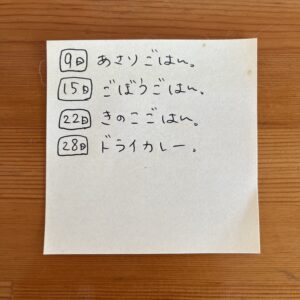 9日 あさりごはん。
15日 ごぼうごはん、
22日 きのこごはん。
28日 ドライカレー。